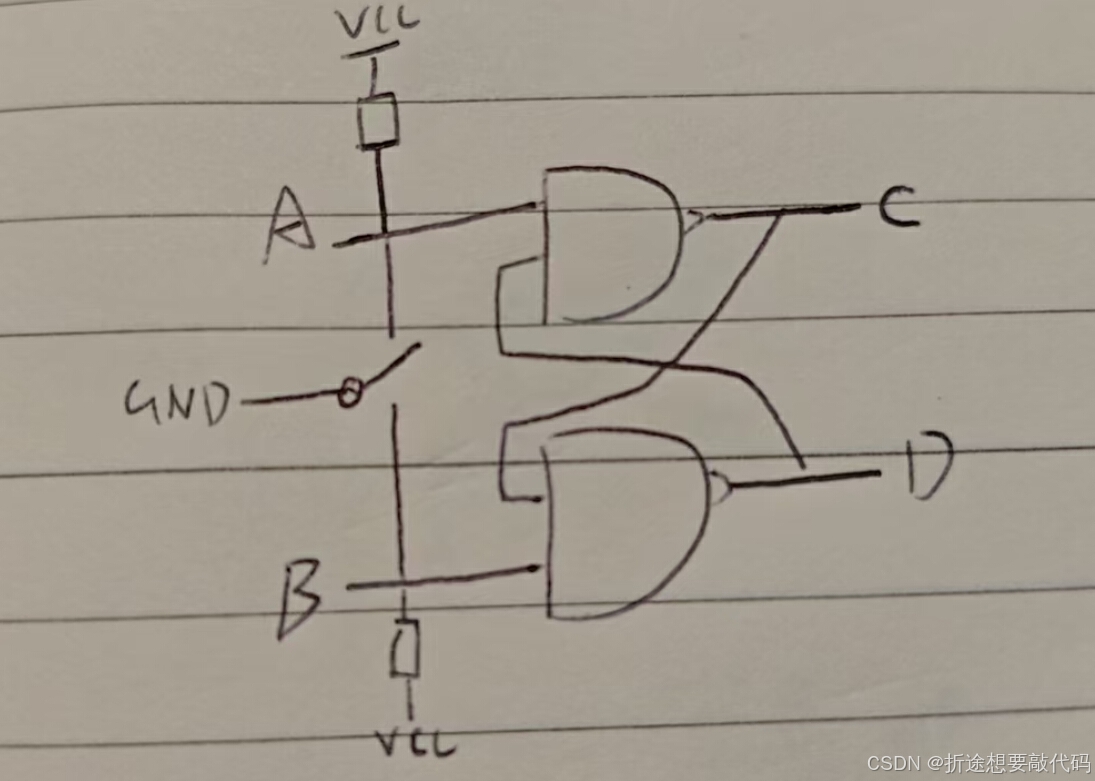 VCC
A
C
GND
D
B
VCC
CSDN @折途想要敲代码